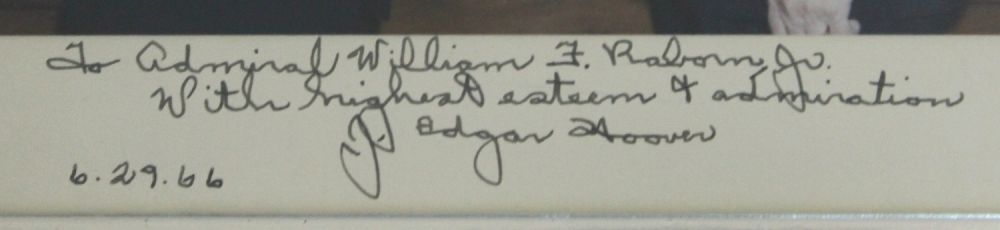 To Admiral William F. Raborn, Jr.
With highest esteem & admiration
J. Edgar Hoover
6.29.66